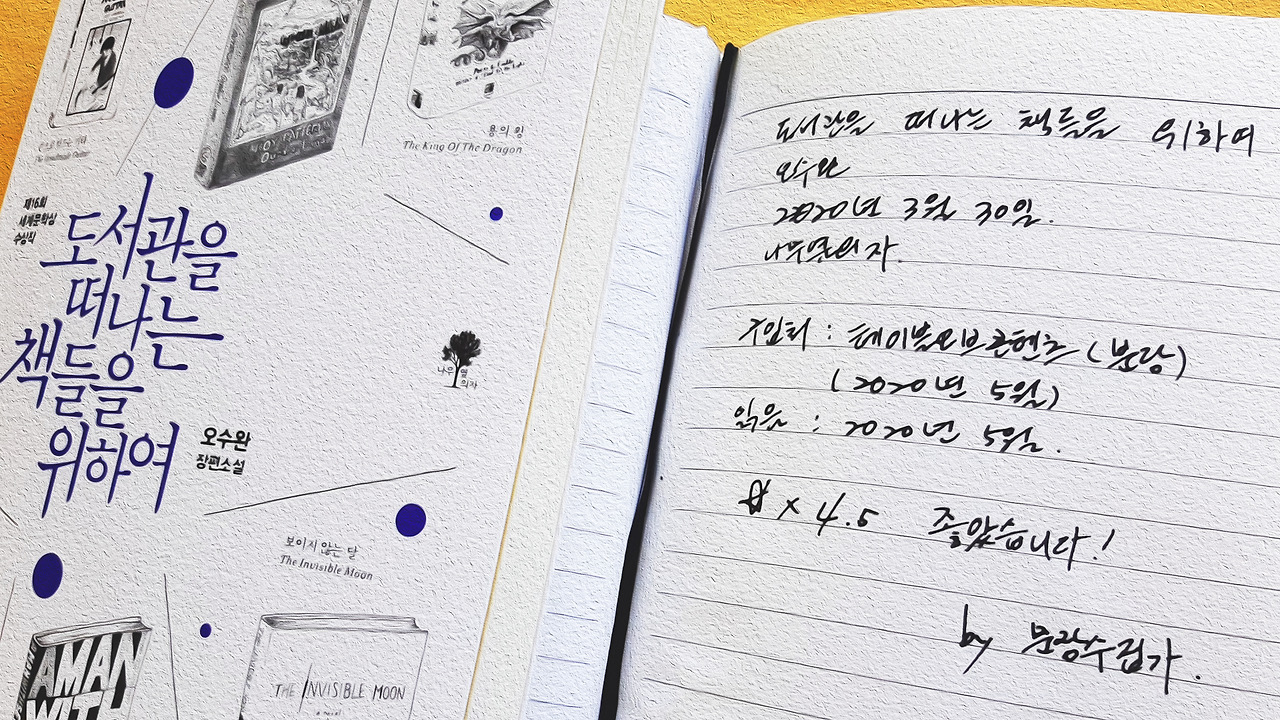 용의 왕
The King Of The Dragon
제16회
세계문학상
수상작
도서관을
떠나는
책들을
위하여
오수완
장편소설
나무옆
의자
보이지 않는 달
The Invisible Moon
A MAN
WITH
THE INVISIBLE MOON
a novel
도서관을 떠나는 책들을 위하여
오수완
2020년 3월 30일.
나무옆의자.
구입처 : 테이블오브콘텐츠 (분당)
(2020년 5월)
읽음 : 2020년 5월.
x 4.5 좋았습니다!
by 문장수집가.